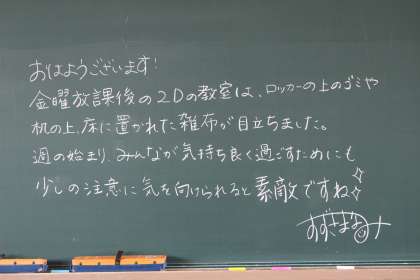 おはようございます!
金曜放課後の2Dの教室は、ロッカーの上のゴミや
机の上、床に置かれた雑布が目立ちました。
週の始まり、みんなが気持ち良く過ごすためにも
少しの注意に気を向けられると素敵ですね